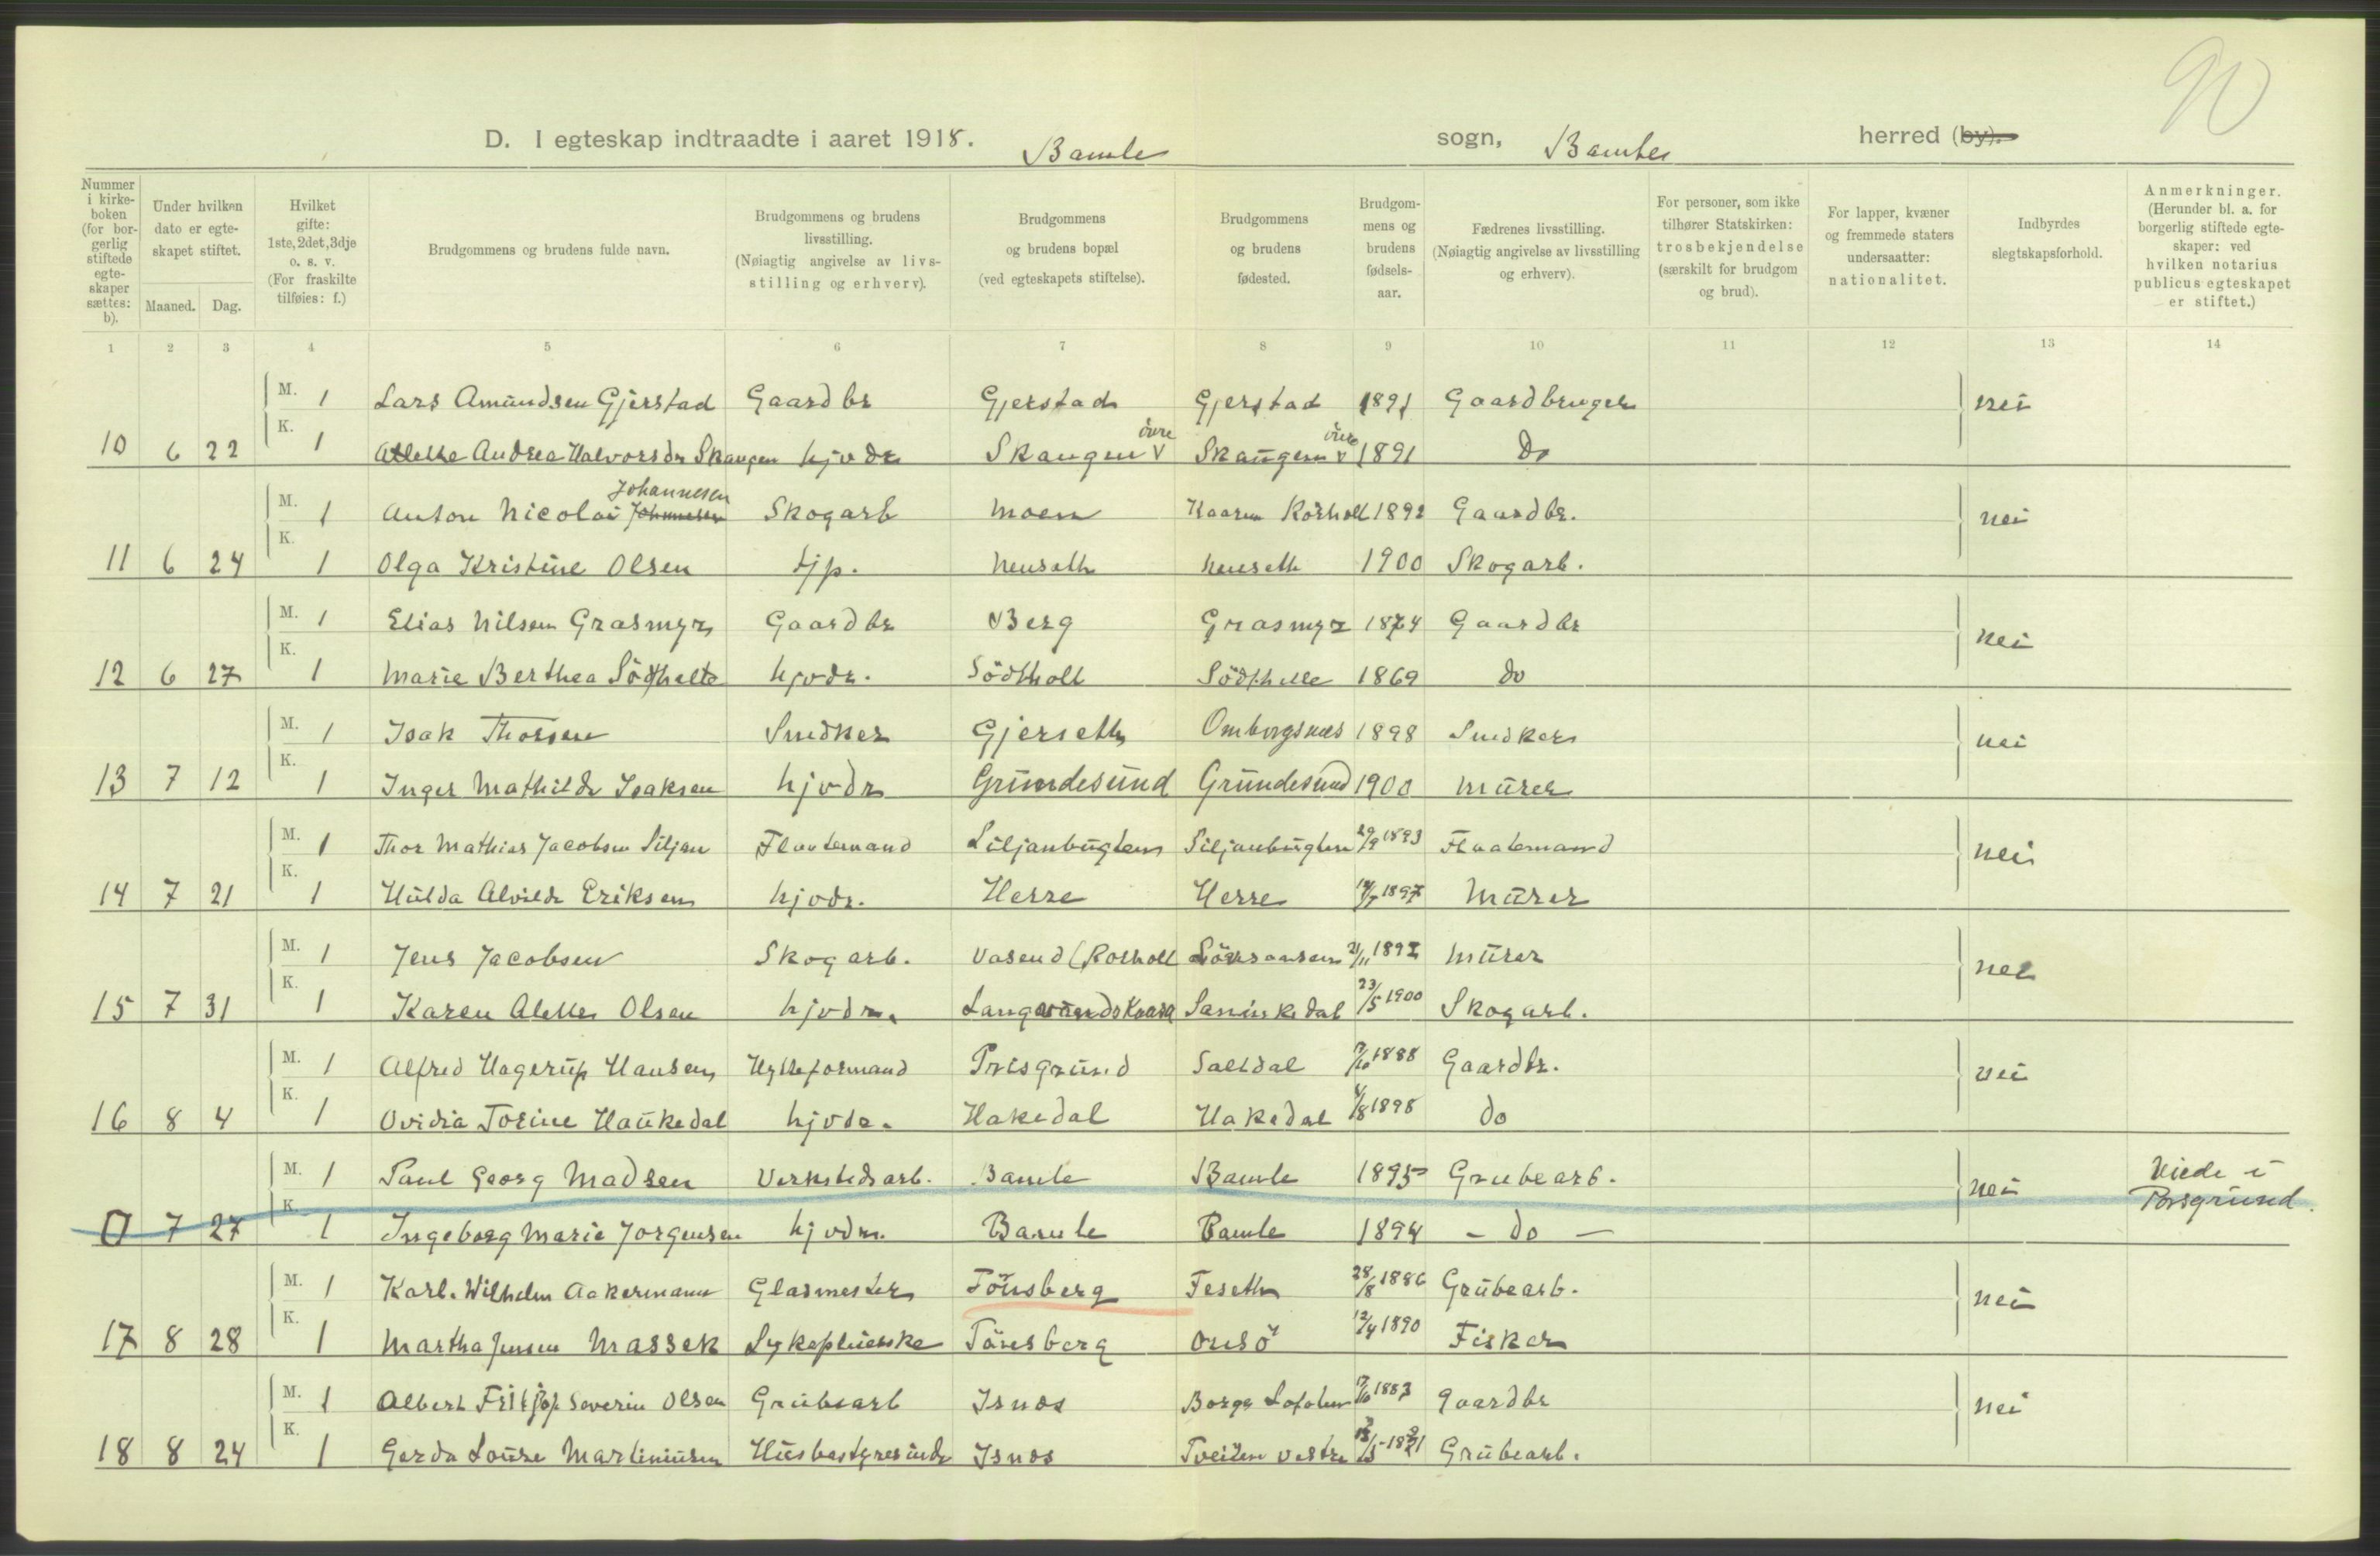 90
D. I egteskap indtraadte i aaret 1918. Bamle sogn, Bamble herred (by).
Nummer i kirkeboken (for borgerlig stiftede egteskaper sættes: b).
Under hvilken dato er egteskapet stiftet.
Maaned. Dag.
Hvilket gifte: 1ste, 2det, 3dje o. s. v. (For fraskilte tilføies: f.)
Brudgommens og brudens fulde navn.
Brudgommens og brudens livsstilling. (Nøiagtig angivelse av livsstilling og erhverv).
Brudgommens og brudens bopæl (ved egteskapets stiftelse).
Brudgommens og brudens fødested.
Brudgommens og brudens fødselsaar.
Fædrenes livsstilling. (Nøiagtig angivelse av livsstilling og erhverv).
For personer, som ikke tilhører Statskirken: trosbekjendelse (særskilt for brudgom og brud).
For lapper, kvæner og fremmede staters undersaatter: nationalitet.
Indbyrdes slegtskapsforhold.
Anmerkninger. (Herunder bl. a. for borgerlig stiftede egteskaper: ved hvilken notarius publicus egteskapet er stiftet.)
1 2 3 4 5 6 7 8 9 10 11 12 13 14
M. 1 Lars Amundsen Gjerstad Gaardbr Gjerstad Gjerstad 1891 Gaardbruger nei
10 6 22 K. 1 Andrea Halvorsdr Skaugen hjvdr Skaugen øvre Skaugen øvre 1891 Do
M. 1 Anton Nicolai Johannesen Skogarb Moen Kaasen Rosholt 1892 Gaardbr. nei
11 6 24 K. 1 Olga Kristine Olsen tjp. Neuseth Neuseth 1900 Skogarb.
M. 1 Elias Nilsen Grasmyr Gaardbr Berg Grasmyr 1874 Gaardbr nei
12 6 27 K. 1 Marie Berthea Södtholte hjvdr. Södtholt Södtholte 1869 do
M. 1 Isak Thorsen Snedker Gjerseth Ombergsnes 1898 Snedker nei
13 7 12 K. 1 Inger Mathilde Isaksen hjvdr Grundesund Grundesund 1900 Murer
M. 1 Thor Mathias Jacobsen Siljan Flaatemand Siljanbugten Siljanbugten 29/9 1893 Flaatemand nei
14 7 21 K. 1 Hulda Alvilde Eriksen hjvdr. Herre Herre 14/7 1897 Murer
M. 1 Jens Jacobsen Skogarb. Vasend (Rosholt 21/11 1892 Murer nei
15 7 31 K. 1 Karen Alette Olsen hjvdr. Saninkedal 23/5 1900 Skogarb.
M. 1 Alfred Hagerup Hansen Hytteformand Prisgrund Saltdal 7/10 1888 Gaardbr. nei
16 8 4 K. 1 Ovidia Torine Haukedal hjvdr. Hakedal Hakedal 4/8 1898 do
M. 1 Paul Georg Madsen Verkstedsarb. Bamle Bamle 1895 Grubearb. nei Viede i Porsgrund.
0 7 27 K. 1 Ingeborg Marie Jorgensen hjvdr. Bamle Bamle 1894 – do –
M. 1 Karl. Wilhelm Aakermann Glasmester Tönsberg Feseth 28/8 1886 Grubearb. nei
17 8 28 K. 1 Martha Jensen Massek Sykepleierske Tönsberg Onsö 12/4 1890 Fisker
M. 1 Albert Fritjof Severin Olsen Grubearb Isnes Borge Lofoten 7/10 1883 Gaardbr nei
18 8 24 K. 1 Gerda Louise Martiniusen Husbestyrerinde Isnes Tveiten vestre Grubearb.